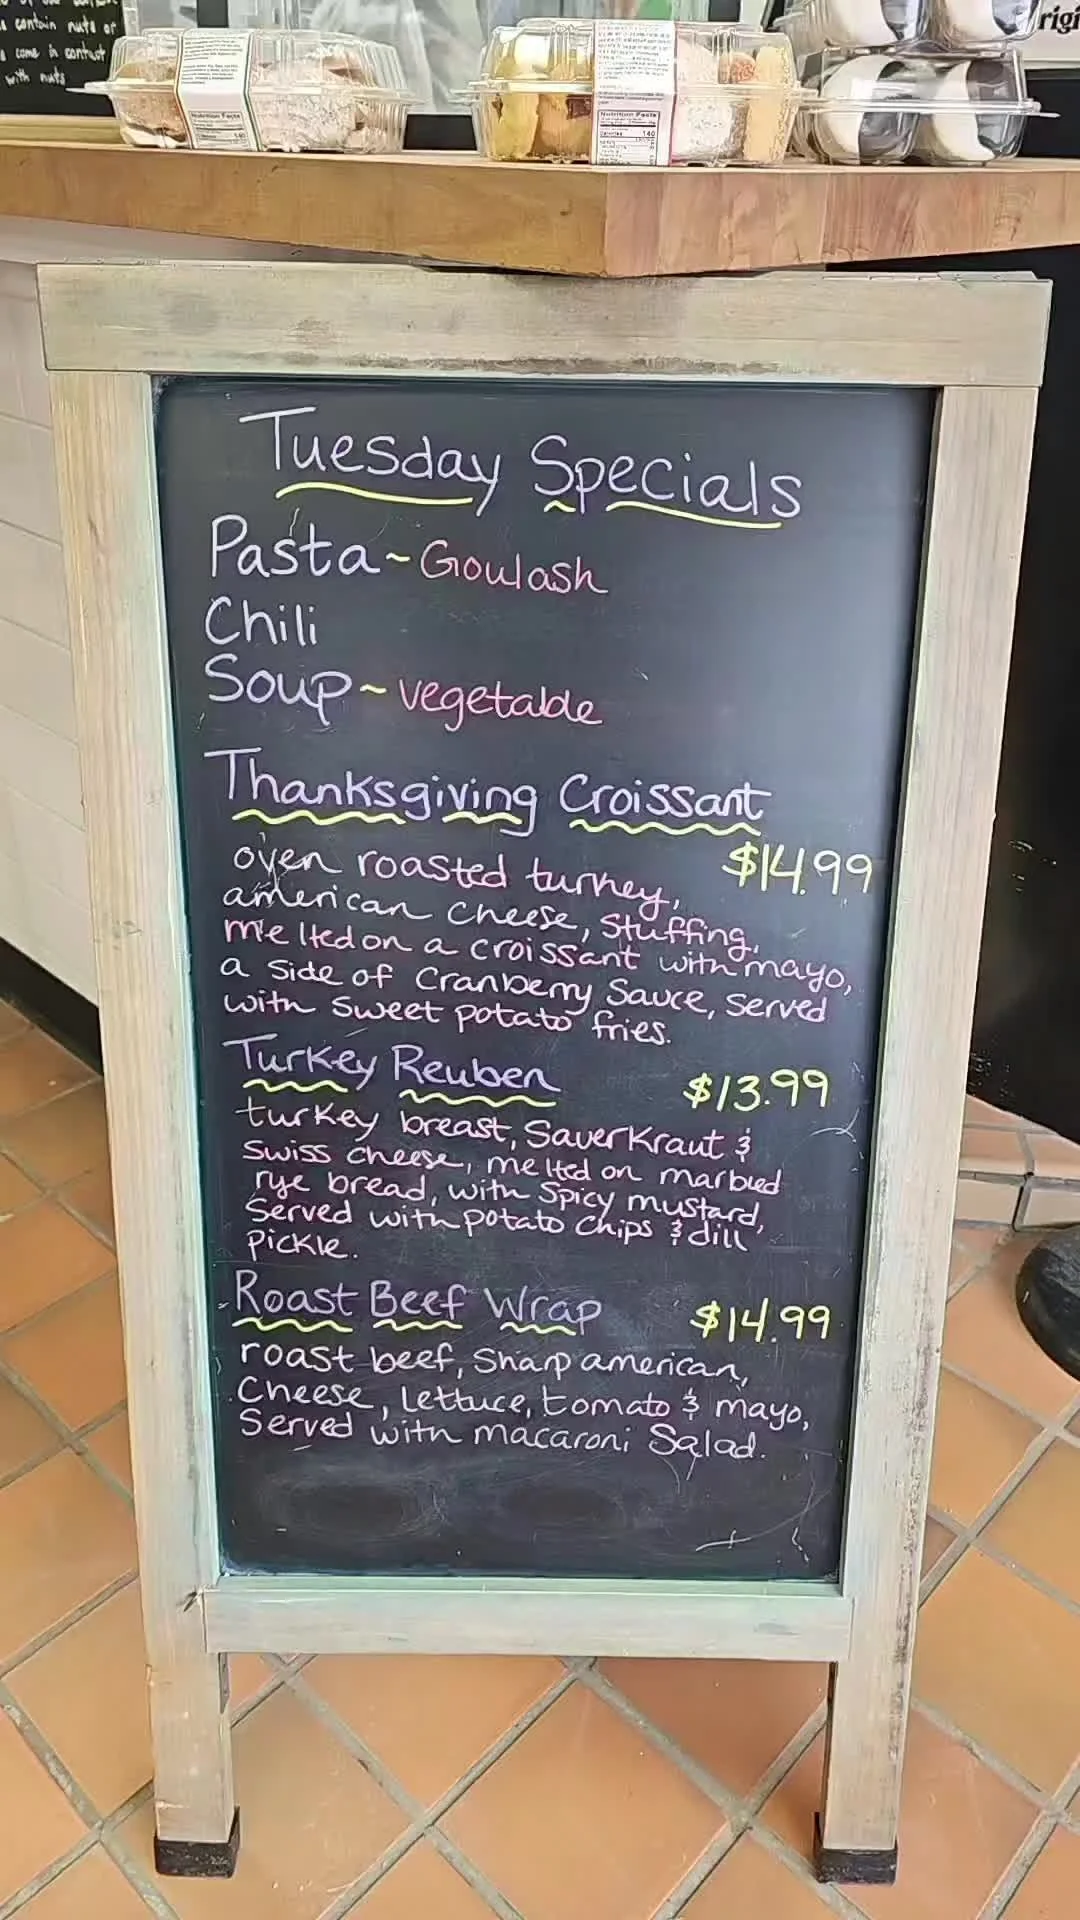 contain nuts or
come in contact
with nuts
Nutrition Facts
Nutrition Facts
140
Tuesday Specials
Pasta ~ Goulash
Chili
Soup ~ vegetable
Thanksgiving Croissant
$14.99
oven roasted turkey,
american cheese, stuffing,
melted on a croissant with mayo,
a side of Cranberry Sauce, served
with sweet potato fries.
Turkey Reuben $13.99
turkey breast, Sauerkraut &
swiss cheese, melted on marbled
rye bread, with spicy mustard,
Served with potato chips & dill
pickle.
Roast Beef Wrap $14.99
roast beef, Sharp american,
Cheese, lettuce, tomato & mayo,
Served with macaroni Salad.